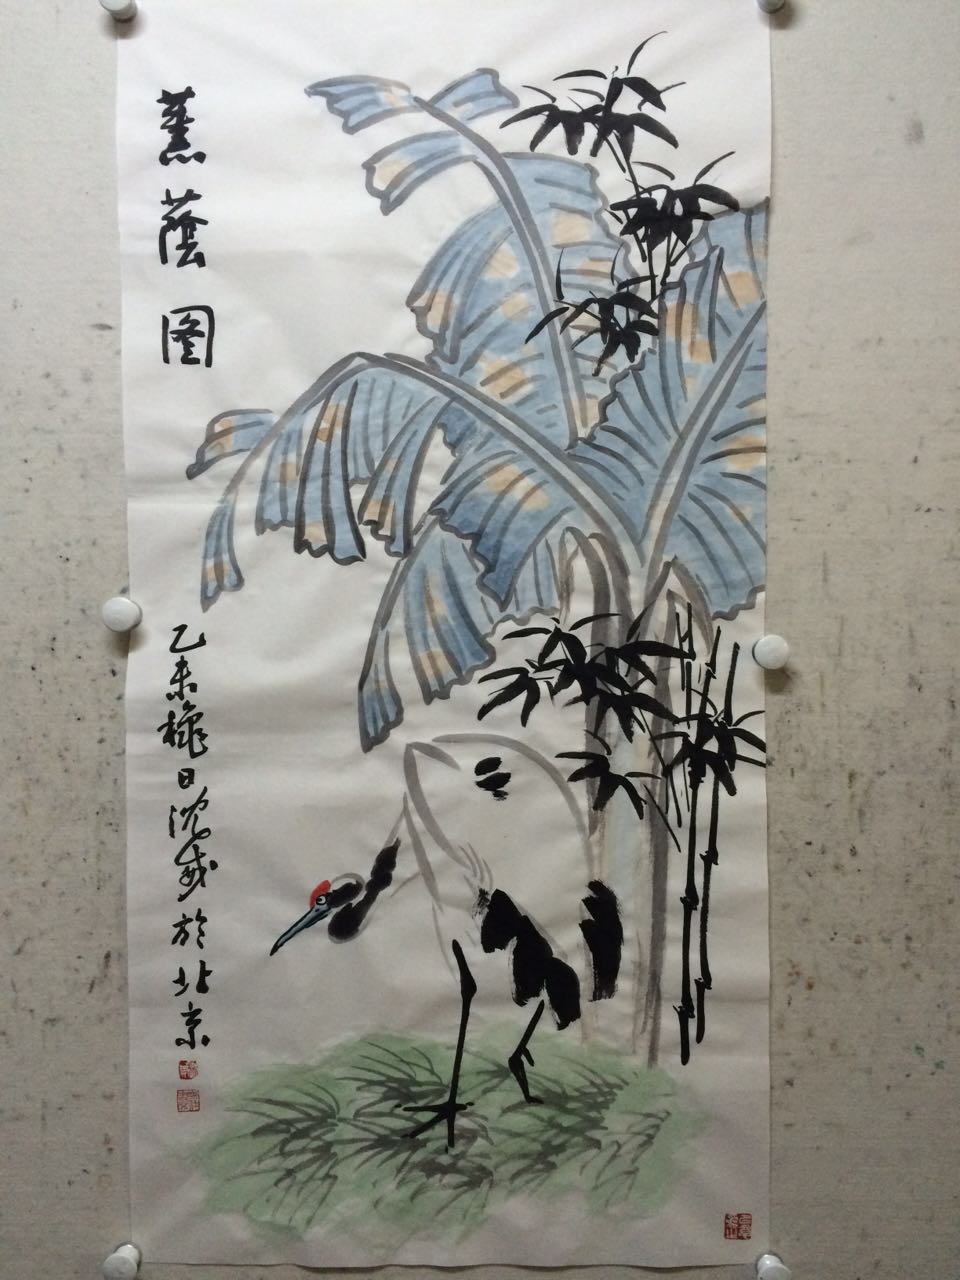 蕉蔭图
乙未穐日沈威於北京